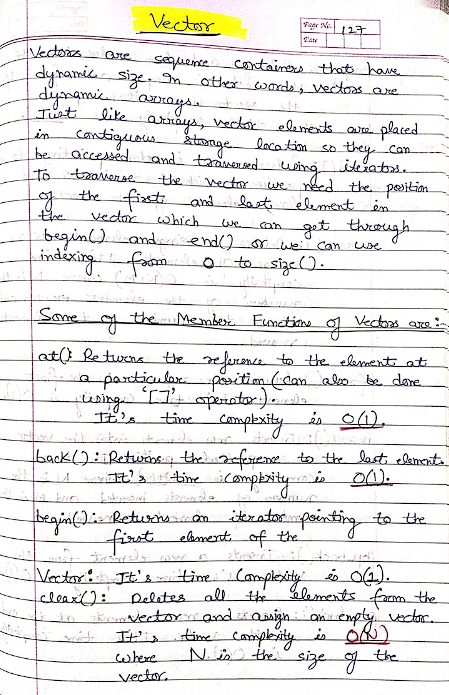 Vector
Page No. 127
Date
Vectors are sequence containers that have
dynamic size. In other words, vectors are
dynamic arrays.
Just like arrays, vector elements are placed
in contiguous storage location so they can
be accessed and traversed using iterators.
To traverse the vector we need the position
of the first and last element in
the vector which we can get through
begin() and end() or we can use
indexing from 0 to size().
Some of the Member Functions of Vectors are:-
at(): Returns the reference to the element at
a particular position (can also be done
using '[]' operator).
It's time complexity is O(1).
back(): Returns the reference to the last element.
It's time complexity is O(1).
begin(): Returns an iterator pointing to the
first element of the
Vector: It's time complexity is O(1).
clear(): Deletes all the elements from the
vector and assign an empty vector.
It's time complexity is O(N)
where N is the size of the
vector.